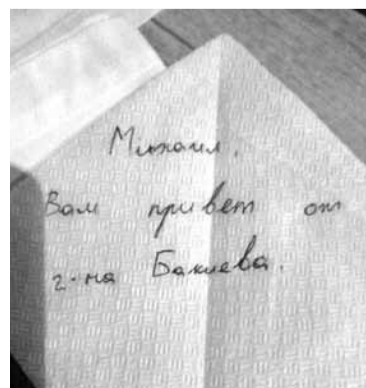 Михаил,
Вам привет от
г-на Бакиева.